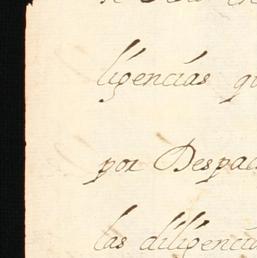 ligencias q
por Despac
las diligencia